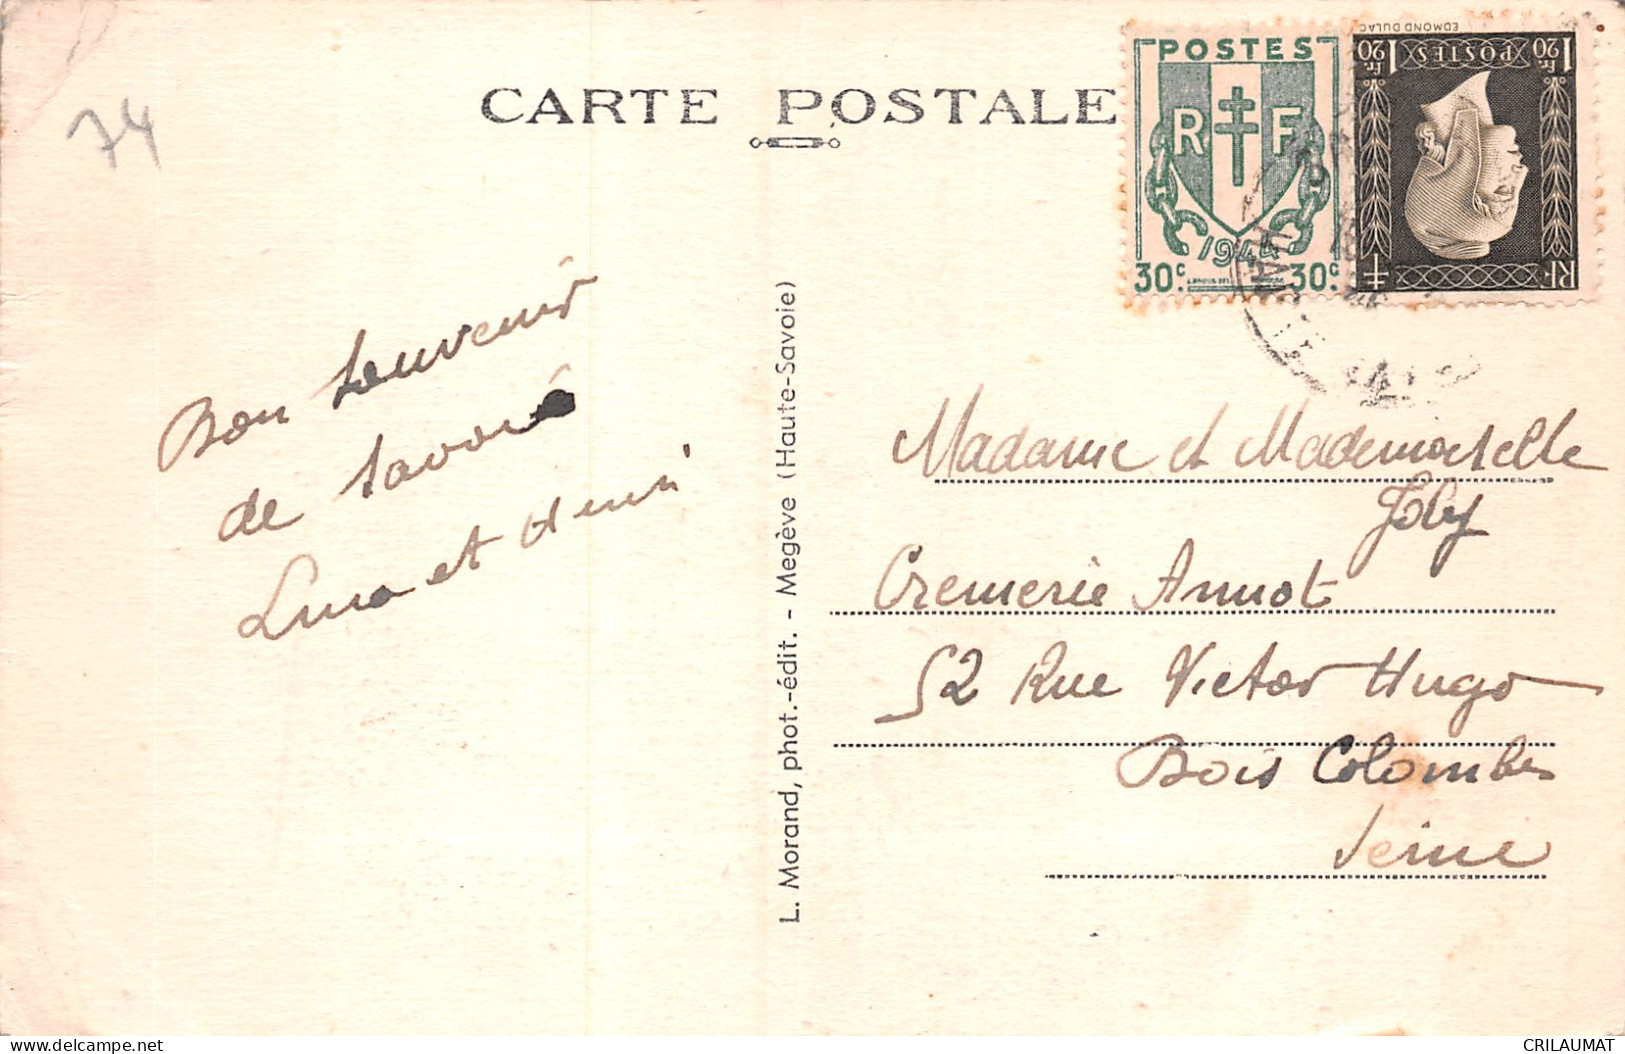 74
CARTE POSTALE
POSTES
R F
1944
30c. 30c.
EDMOND DULAC
1,20 Fr. POSTES 1,20 Fr.
RF
Bon Souvenir
de Savoie
et Henri
L. Morand, phot.-édit. - Megève (Haute-Savoie)
Madame et Mademoiselle
Joly
Cremerie Annot
52 Rue Victor Hugo
Bois Colombes
Seine
CRILAUMAT